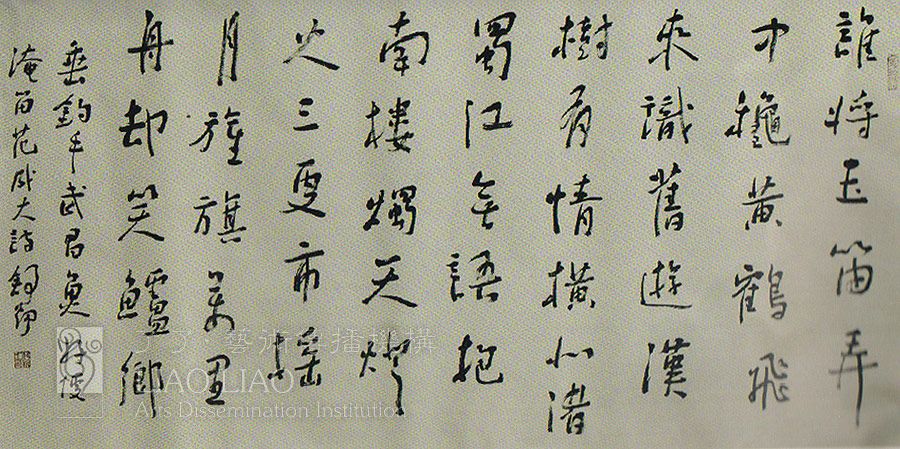 誰將玉笛弄
中龝黃鶴飛
來識舊遊漢
樹有情橫北渚
蜀江無語抱
南樓燭天燈
火三更市搖
月旌旗萬里
舟却笑鱸鄉
垂釣手武昌魚好便
淹留范成大詩
了了·藝術傳播機構
LIAO LIAO
Arts Dissemination Institution